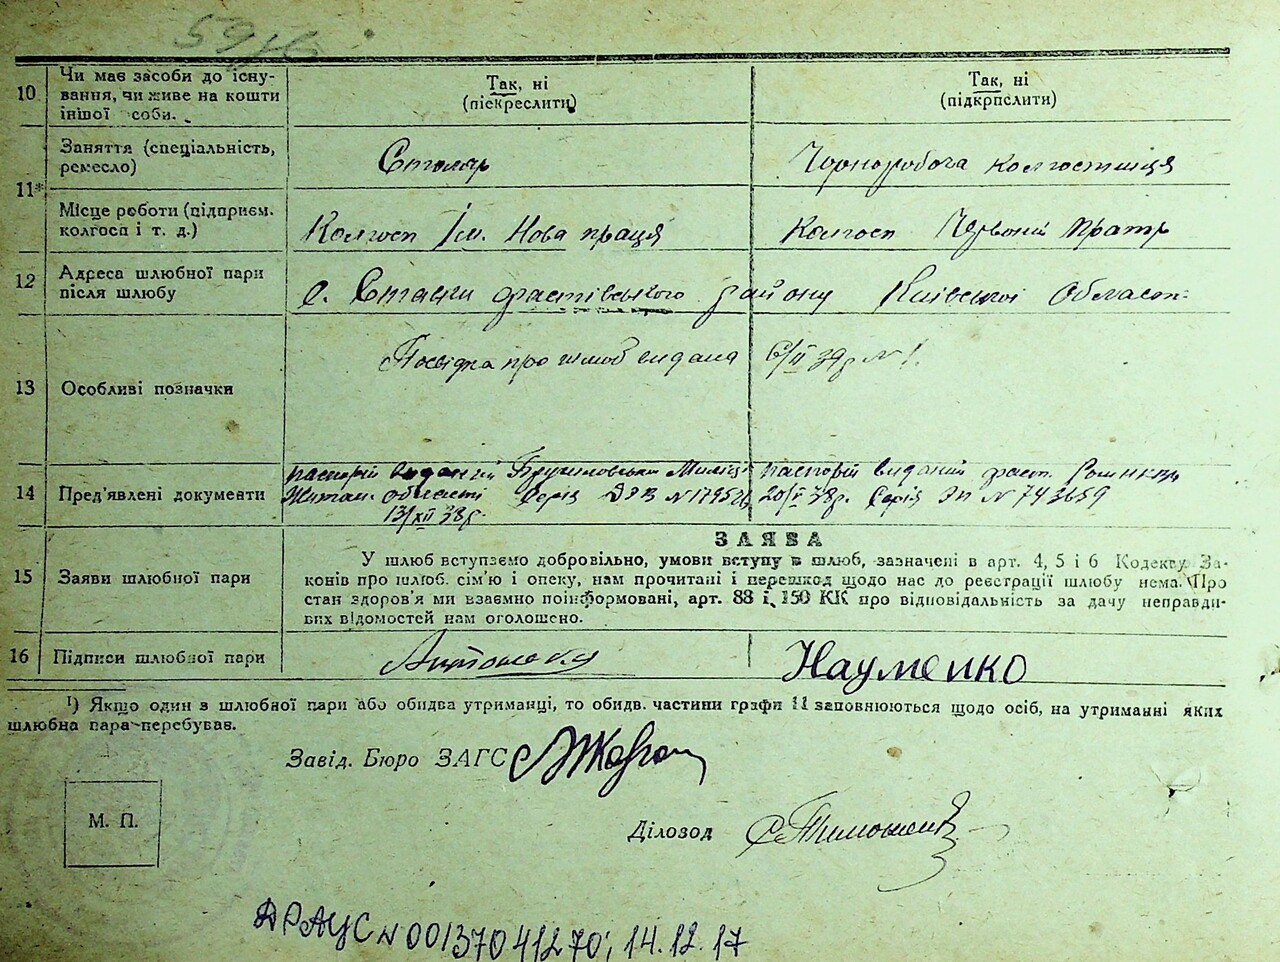 10 Чи має засоби до існу-
вання, чи живе на кошти
іншої особи.
Так, ні
(піекреслити)
Так, ні
(підкрпслити)
11* Заняття (спеціальність,
ремесло)
Столяр
Чорноробоча колгоспниця
Місце роботи (підприєм.
колгоса і т. д.)
Колгосп Ім. Нова праця
Колгосп Червоний Прапр
12 Адреса шлюбної пари
після шлюбу
с. Ставки фастівського району Київської Област-
13 Особливі позначки
Посвідка про шлюб видана 6/II 39р N 1.
14 Пред'явлені документи
паспорт виданий Міліці
Житом. області Серія N
13/XII 38р.
паспорт виданий фаст.
20/V 38р. Серія N 743659
15 Заяви шлюбної пари
ЗАЯВА
У шлюб вступаємо добровільно, умови вступу в шлюб, зазначені в арт. 4, 5 і 6 Кодексу За-
конів про шлюб. сім'ю і опеку, нам прочитані і перешкод щодо нас до реєстрації шлюбу нема. Про
стан здоров'я ми взаємно поінформовані, арт. 88 і 150 КК про відповідальність за дачу неправди-
вих відомостей нам оголошено.
16 Підписи шлюбної пари
Науменко
¹) Якщо один з шлюбної пари або обидва утриманці, то обидв. частини графи 11 заповнюються щодо осіб, на утриманні яких
шлюбна пара перебуває.
Завід. Бюро ЗАГС
М. П.
Діловод С. Тимошенко
ДРАЦС N 00137041270; 14.12.17